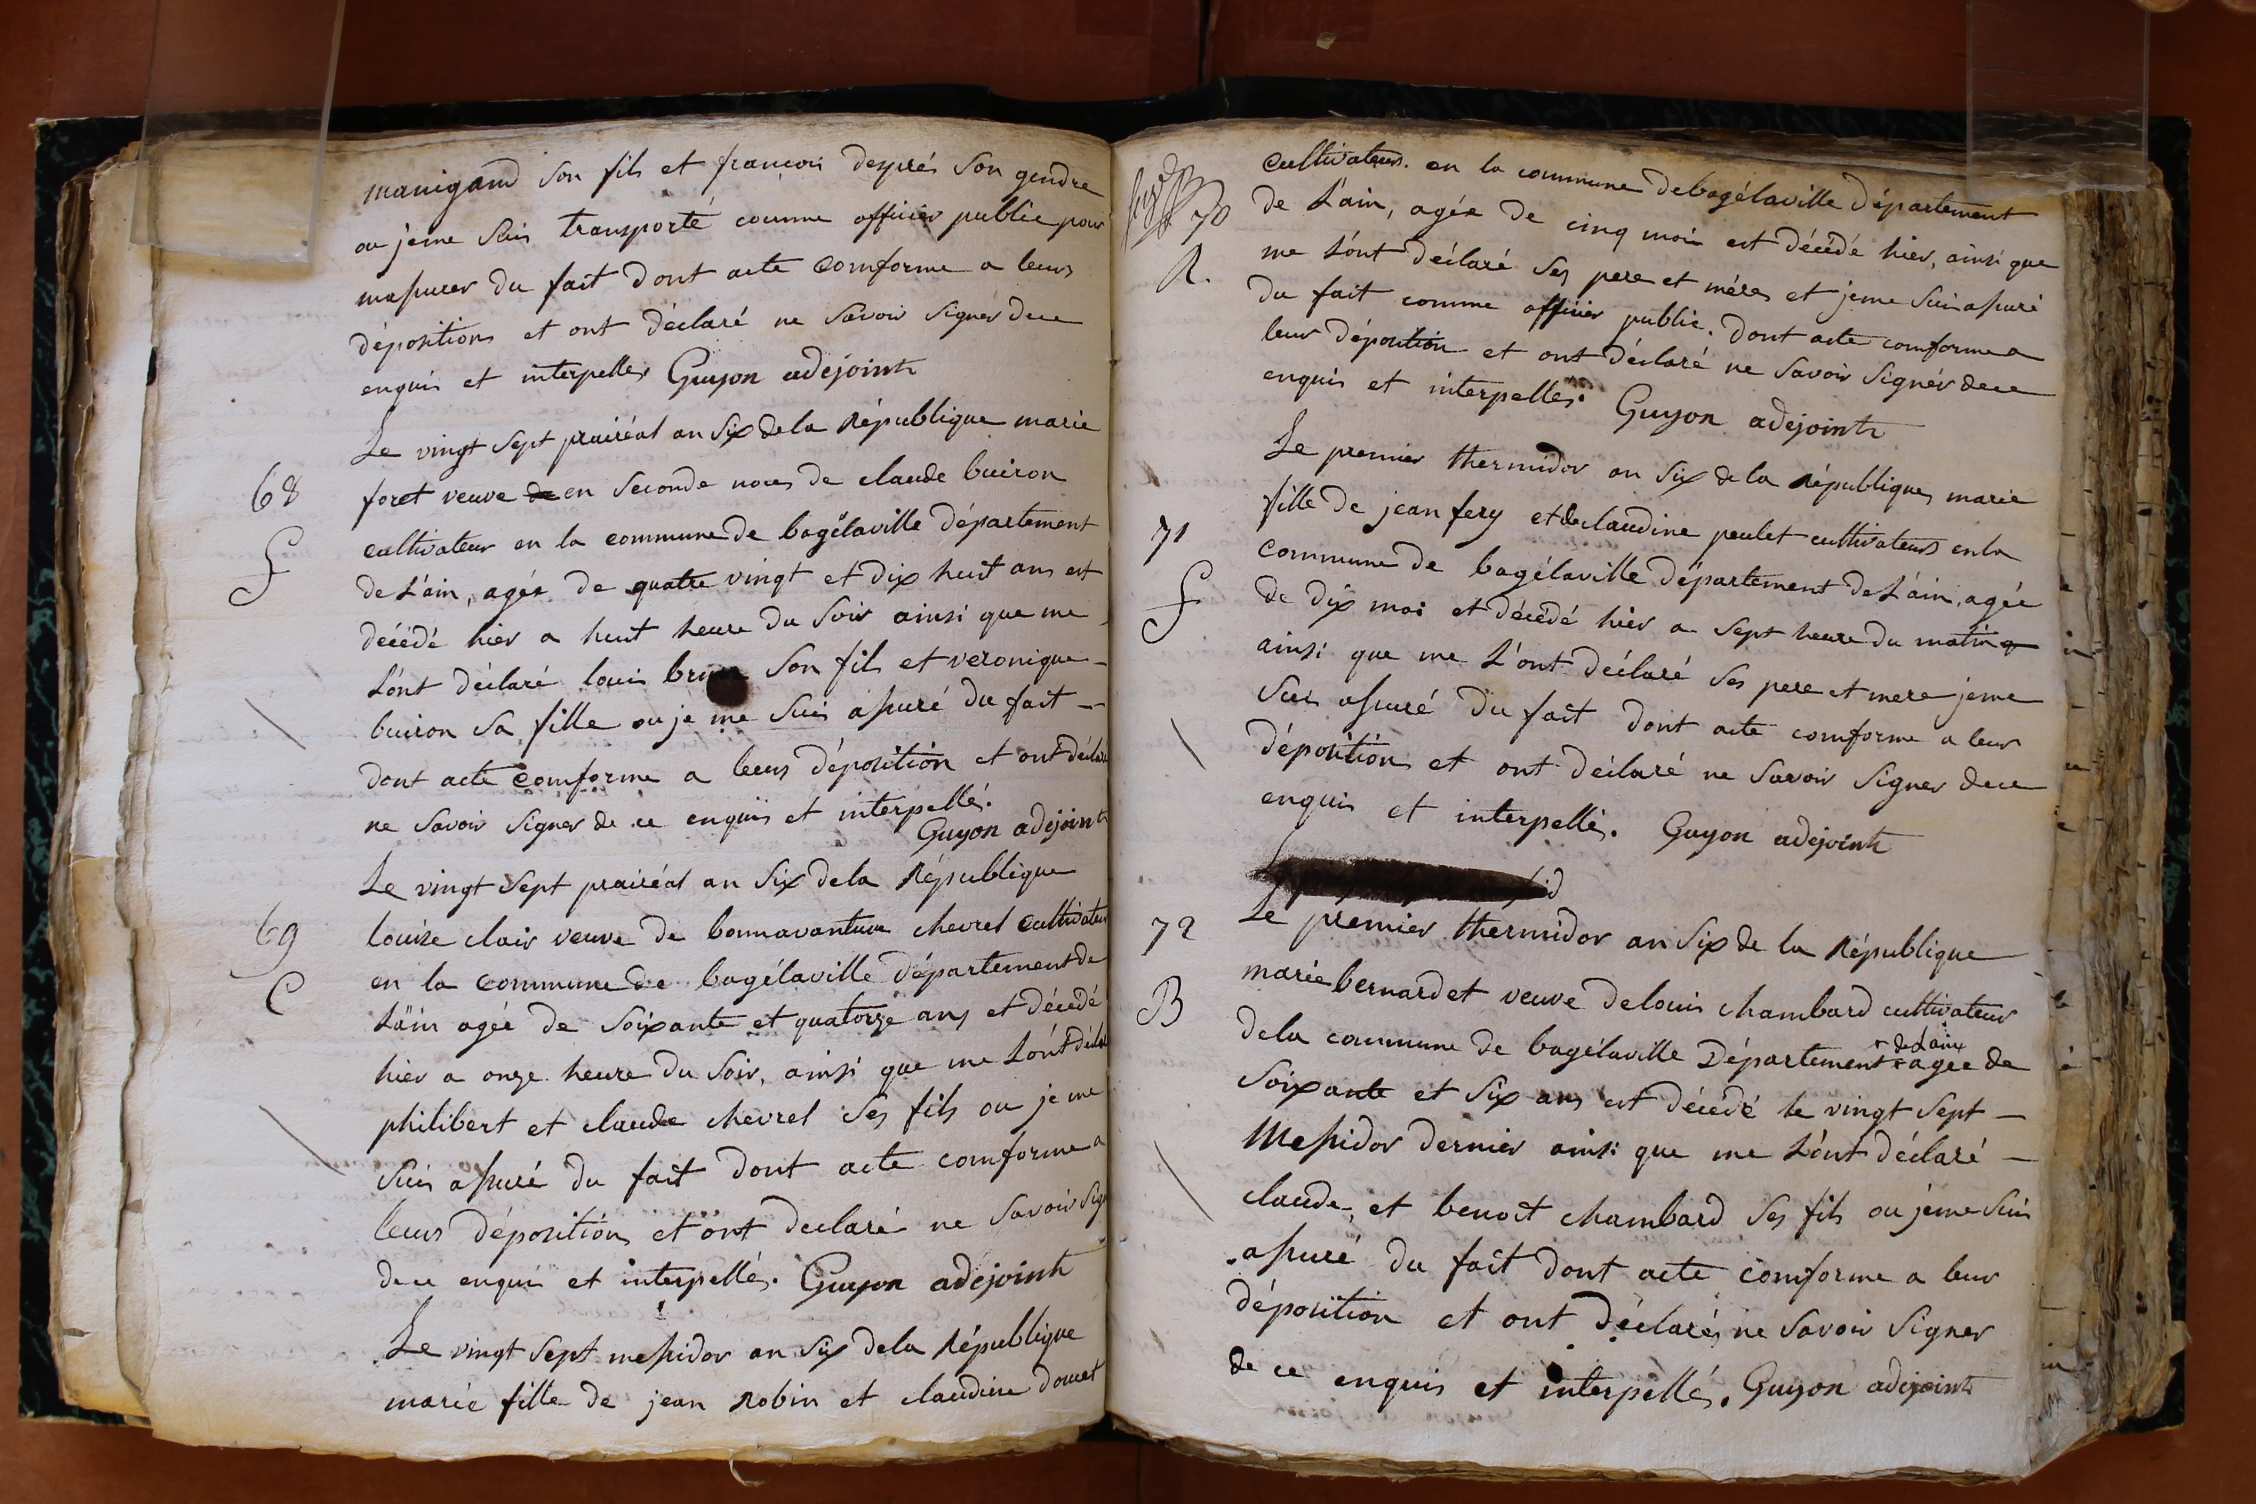 manigand son fils et francois despré son gendre
ou jeme suis transporté comme officier public pour
massurer du fait dont acte comforme a leurs
dépositions et ont déclaré ne savoir signer dece
enquis et interpellés Guyon adejoint
Le vingt sept prairéal an six dela République marie
68
foret veuve de en seconde noces de claude buiron
cultivateur en la commune de bagélaville département
f
de L'ain, agée de quatre vingt et dix huit ans est
décédé hier a huit heure du soir ainsi que me
L'ont déclaré louis son fils et veronique
buiron sa fille ou je me suis assuré du fait
dont acte comforme a leurs déposition et ont déclaré
ne savoir signer de ce enquis et interpellé.
Guyon adejoint
Le vingt sept prairéal an six dela République
69
louise clair veuve de bonnavanture chevrel cultivateur
en la commune de bagélaville département de
C
L'ain agée de soixante et quatorze ans et décédé
hier a onze heure du soir, ainsi que me L'ont
philibert et claude chevrel ses fils ou je me
suis assuré du fait dont acte comforme a
leurs dépositions et ont declaré ne savoir sig
dece enquis et interpellés. Guyon adejoint
Le vingt sept messidor an six dela République
marie fille de jean Robin et claudine doucet
cultivateurs en la commune debagélaville département
70
de L'ain, agée de cinq mois est décédé hier, ainsi que
R.
me L'ont déclaré ses pere et méres et jeme suis assuré
du fait comme officier public. dont acte comforme a
leur déposition et ont déclaré ne savoir signér dece
enquis et interpellés. Guyon adejoint
Le premier thermidor an six de la République, marie
fille de jean fery et de claudine peulet cultivateurs enla
71
commune de bagélaville département de L'ain, agée
f
de dix moi et décédé hier a sept heure du matin
ainsi que me L'ont déclaré ses pere et mere jeme
suis assuré du fait dont acte comforme a leur
dépositions et ont déclaré ne savoir signer dece
enquis et interpellés. Guyon adejoint
72
Le premier thermidor an six de la République
marie bernardet veuve delouis chambard cultivateur
B
de L'ain
dela commune de bagélaville Département agée de
soixante et six ans est décédé le vingt sept
Messidor dernier ainsi que me L'ont déclaré
claude, et benoit chambard ses fils ou jeme suis
assuré du fait dont acte comforme a leur
déposition et ont déclarés ne savoir signer
de ce enquis et interpellés. Guyon adejoint